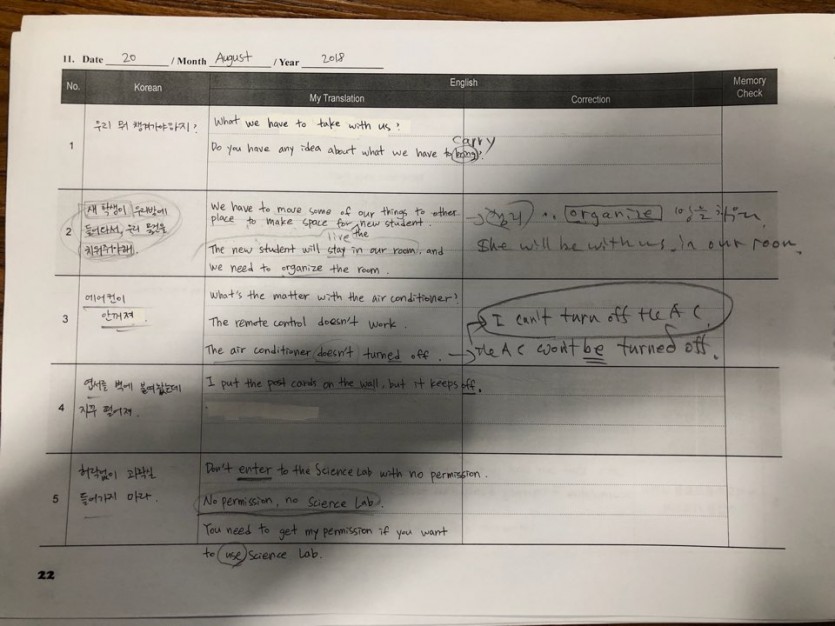 11. Date 20 / Month August / Year 2018
No. Korean English Memory Check
My Translation Correction
1
우리 뭐 챙겨가야하지?
What we have to take with us?
carry
Do you have any idea about what we have to bring?
2
새 학생이 우리방에
들어와서, 우리 물건을
We have to move some of our things to other
place to make space for new student.
the
live
The new student will stay in our room, and
we need to organize the room.
→ 정리 organize
She will be with us in our room.
3
에어컨이
안꺼져.
What's the matter with the air conditioner?
The remote control doesn't work.
The air conditioner doesn't turned off.
I can't turn off the AC.
→ the AC won't be turned off.
4
엽서를 벽에 붙여놨는데
자꾸 떨어져.
I put the post cards on the wall, but it keeps off.
5
허락없이 과학실
들어가지 마라.
Don't enter to the Science Lab with no permission.
No permission, no Science Lab.
You need to get my permission if you want
to use Science Lab.
22